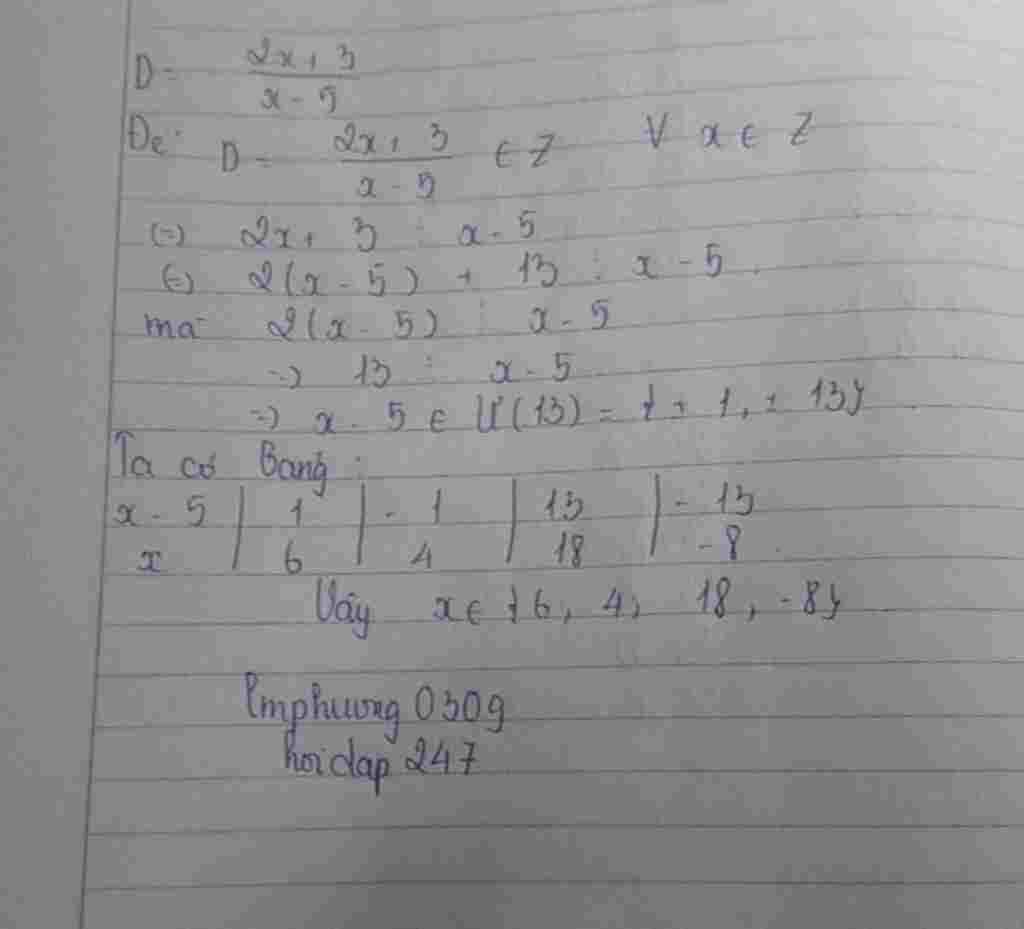 D = \frac{2x + 3}{x - 5}
Để: D = \frac{2x + 3}{x - 5} ∈ Z ∀ x ∈ Z
(=) 2x + 3 ⋮ x - 5
(=) 2(x - 5) + 13 ⋮ x - 5
mà 2(x - 5) ⋮ x - 5
=> 13 ⋮ x - 5
=> x - 5 ∈ Ư(13) = {± 1, ± 13}
Ta có Bảng :
x - 5 | 1 | - 1 | 13 | - 13
x | 6 | 4 | 18 | - 8
Vậy x ∈ {6, 4, 18, -8}
lmphuong 0309
hoidap 247